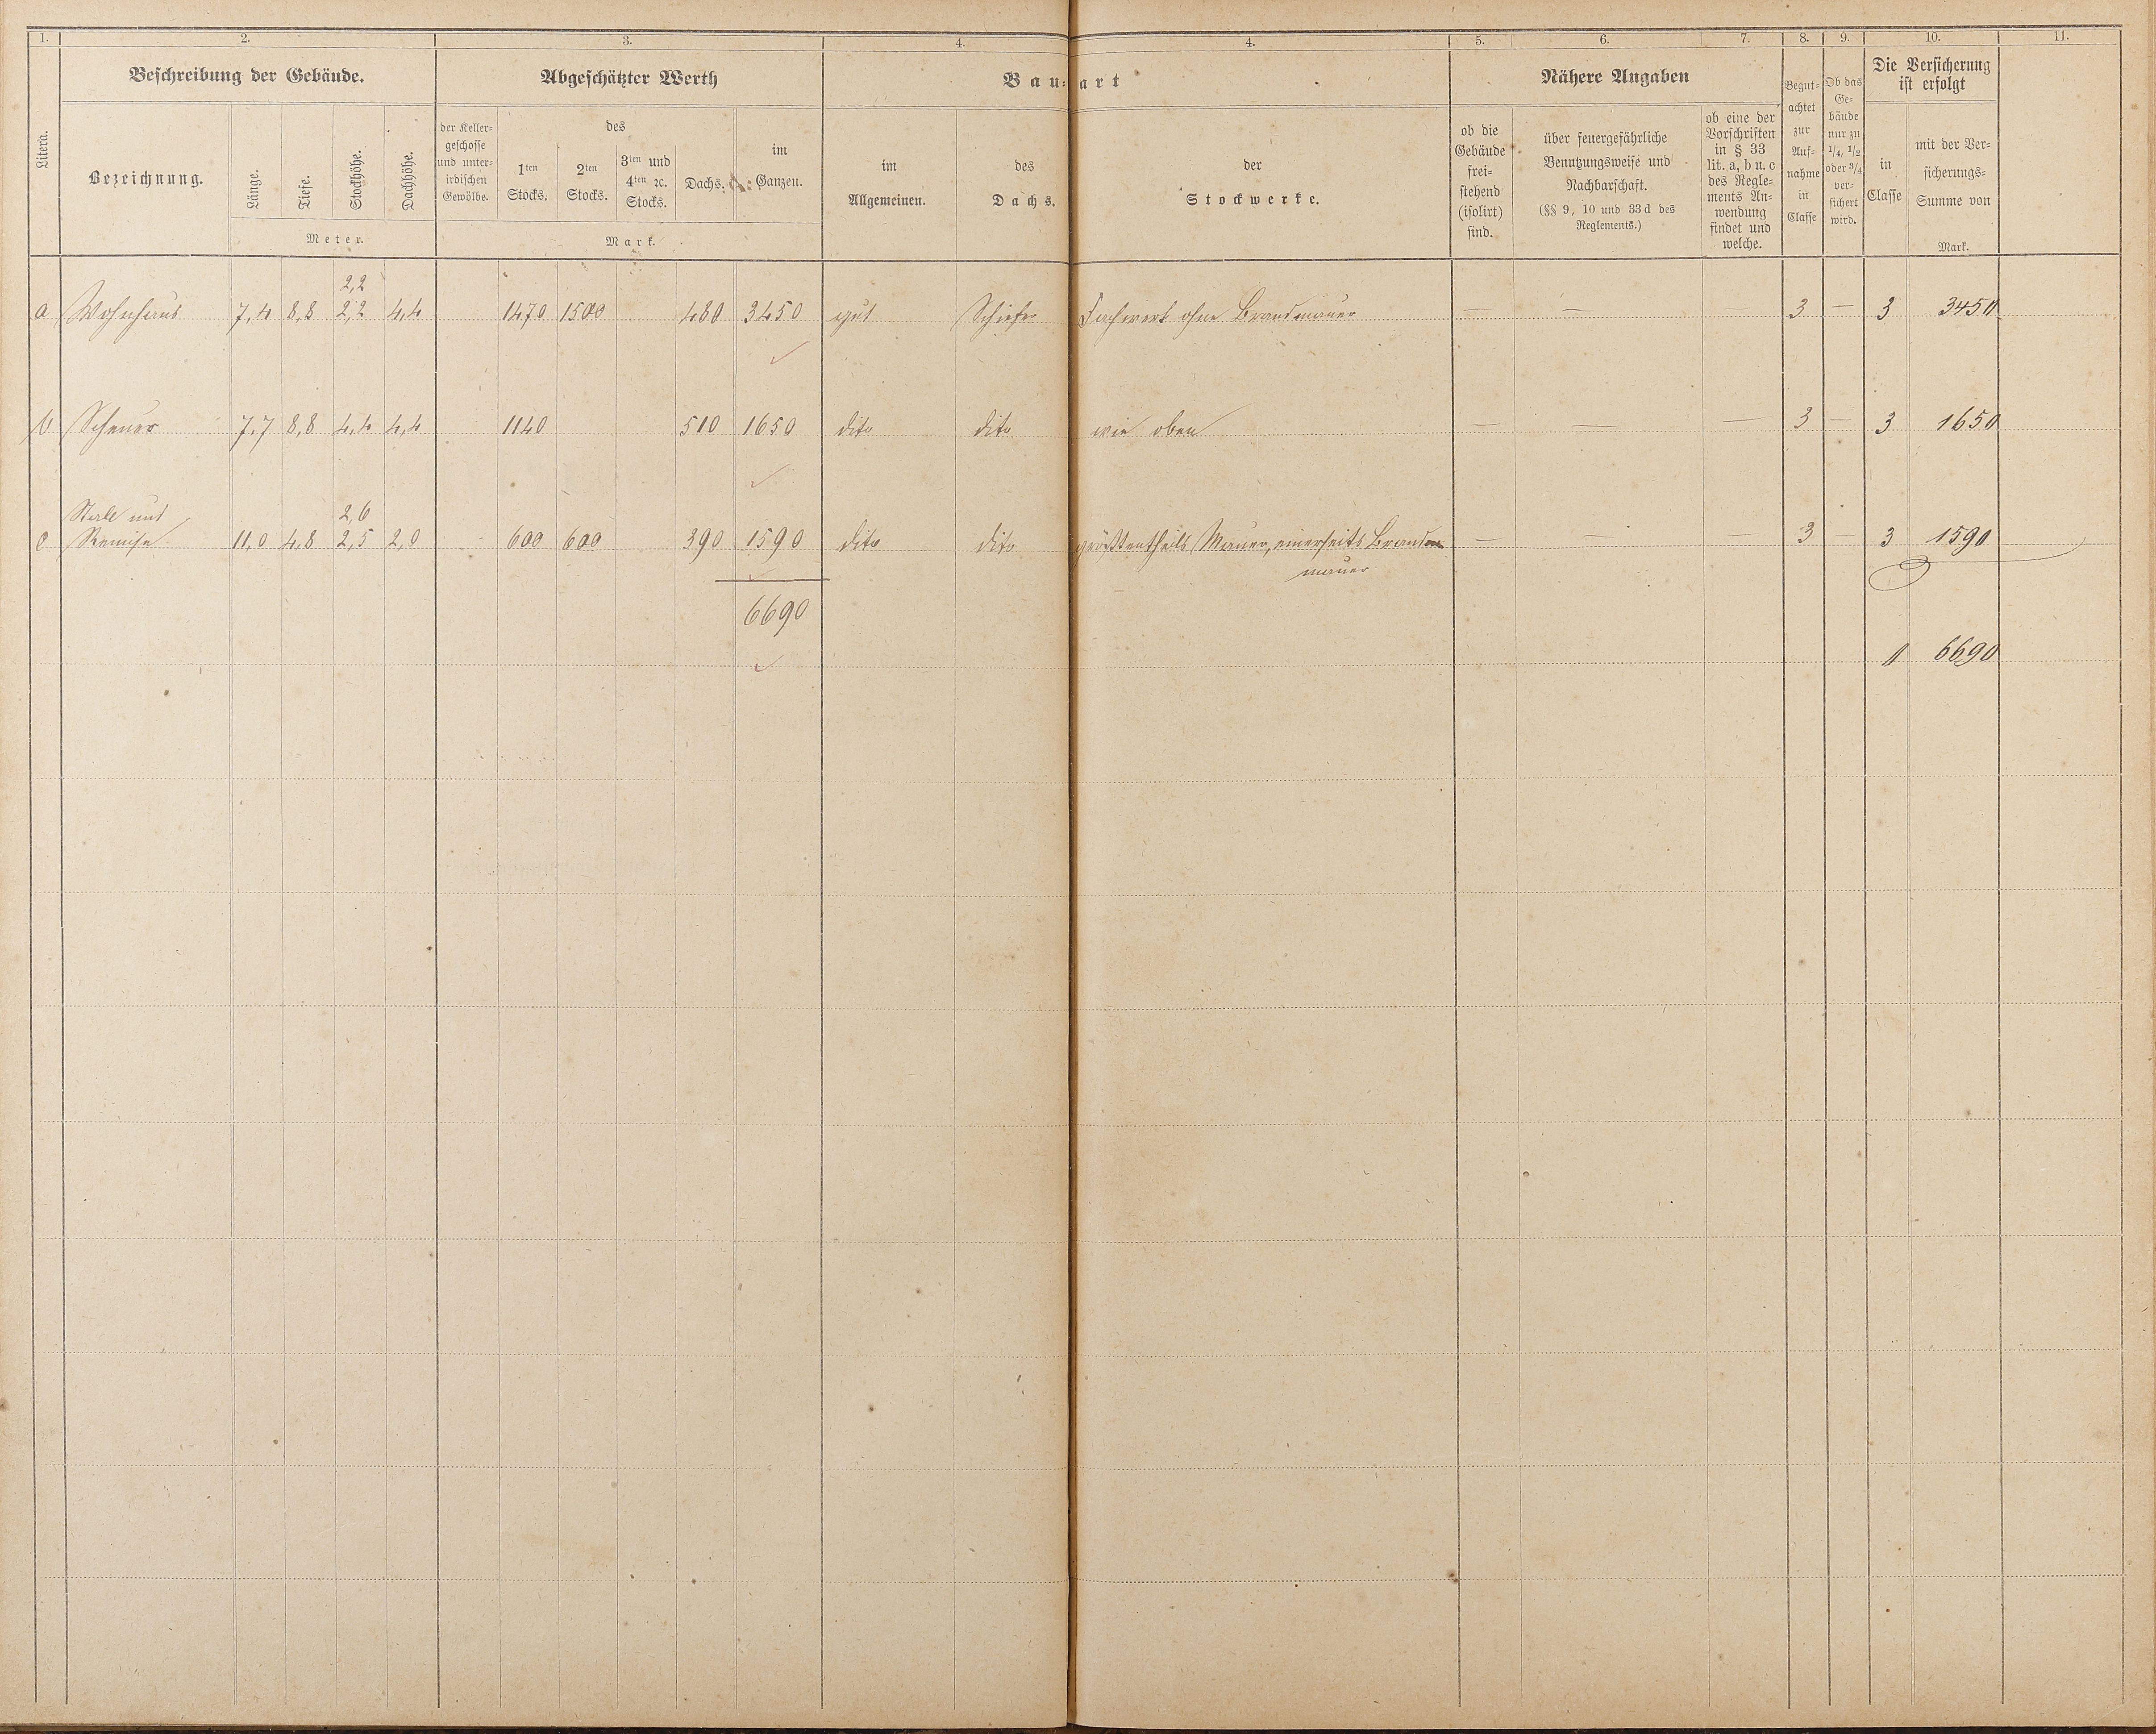 1. 2. 3. 4. 4. 5. 6. 7. 8. 9. 10. 11.
Litera.
Beschreibung der Gebäude.
Bezeichnung.
Länge.
Tiefe.
Stockhöhe.
Dachhöhe.
Meter.
Abgeschätzter Werth
der Keller-
geschosse
und unter-
irdischen
Gewölbe.
des
1ten
Stocks.
2ten
Stocks.
3ten und
4ten ꝛc.
Stocks.
Dachs.
im
Ganzen.
Mark.
Bau-art
im
Allgemeinen.
des
Dachs.
der
Stockwerke.
Nähere Angaben
ob die
Gebäude
frei-
stehend
(isolirt)
sind.
über feuergefährliche
Benutzungsweise und
Nachbarschaft.
(§§ 9, 10 und 33 d des
Reglements.)
ob eine der
Vorschriften
in § 33
lit. a, b u. c
des Regle-
ments An-
wendung
findet und
welche.
Begut-
achtet
zur
Auf-
nahme
in
Classe
Ob das
Ge-
bäude
nur zu
1/4, 1/2
oder 3/4
ver-
sichert
wird.
Die Versicherung
ist erfolgt
in
Classe
mit der Ver-
sicherungs-
Summe von
Mark.
2,2
a Wohnhaus 7,4 8,8 2,2 4,4 1470 1500 480 3450 gut Schiefer Fachwerk ohne Brandmauer — — — 3 — 3 3450
b Scheuer 7,7 8,8 4,4 4,4 1140 510 1650 dito dito wie oben — — — 3 — 3 1650
Stall und 2,6
c Remise 11,0 4,8 2,5 2,0 600 600 390 1590 dito dito größtentheils Mauer, einerseits Brand= — — — 3 — 3 1590
mauer
6690
6690